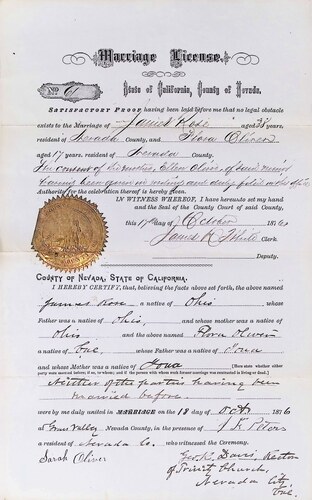 Marriage License.
No 61 State of California, County of Nevada.
SATISFACTORY PROOF having been laid before me that no legal obstacle
exists to the Marriage of James Rose aged 38 years,
resident of Nevada County, and Flora Oliver
aged 17 years. resident of Nevada County.
The consent of her mother, Ellen Oliver of said minor
having been given in writing and duly filed in this office
Authority for the celebration thereof is hereby given.
IN WITNESS WHEREOF, I have hereunto set my hand
and the Seal of the County Court of said County.
this 17th day of October 1876
James K. Clerk.
Deputy.
COUNTY OF NEVADA, STATE OF CALIFORNIA.
I HEREBY CERTIFY, that, believing the facts above set forth, the above named
James Rose a native of Ohio whose
Father was a native of Ohio, and whose mother was a native of
Ohio and the above named Flora Oliver
a native of Cal, whose Father was a native of Iowa
and whose Mother was a native of Iowa
Neither of the parties having been
married before.
were by me duly united in MARRIAGE on the 18 day of Oct 1876
at Grass Valley, Nevada County, in the presence of Peters
a resident of Nevada Co. who witnessed the Ceremony.
Sarah Oliver Geo. R. Davis, Rector
of Trinity Church,
Nevada City,
Cal.